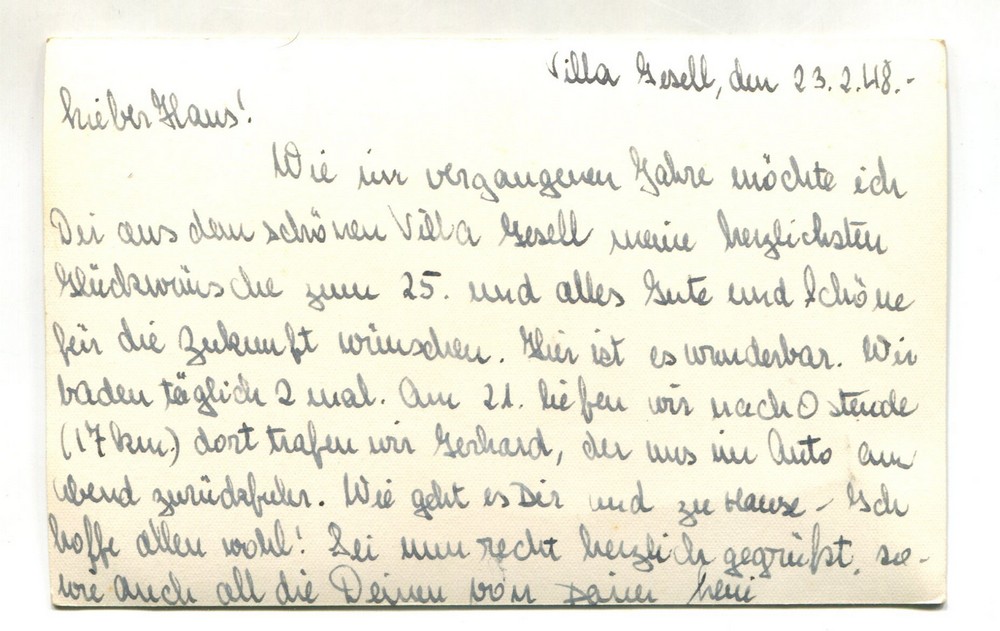 Villa Gesell, den 23.2.48.-
Lieber Hans!
Wie im vergangenen Jahre möchte ich
Dir aus dem schönen Villa Gesell meine herzlichsten
Glückwünsche zum 25. und alles Gute und Schöne
für die Zukunft wünschen. Hier ist es wunderbar. Wir
baden täglich 2 mal. Am 21. liefen wir nach Ostende
(17 km.) dort trafen wir Gerhard, der uns im Auto am
abend zurückfuhr. Wie geht es Dir und zu Hause - Ich
hoffe allen wohl! Sei nun recht herzlich gegrüßt, so-
wie auch all die Deinen von Deiner